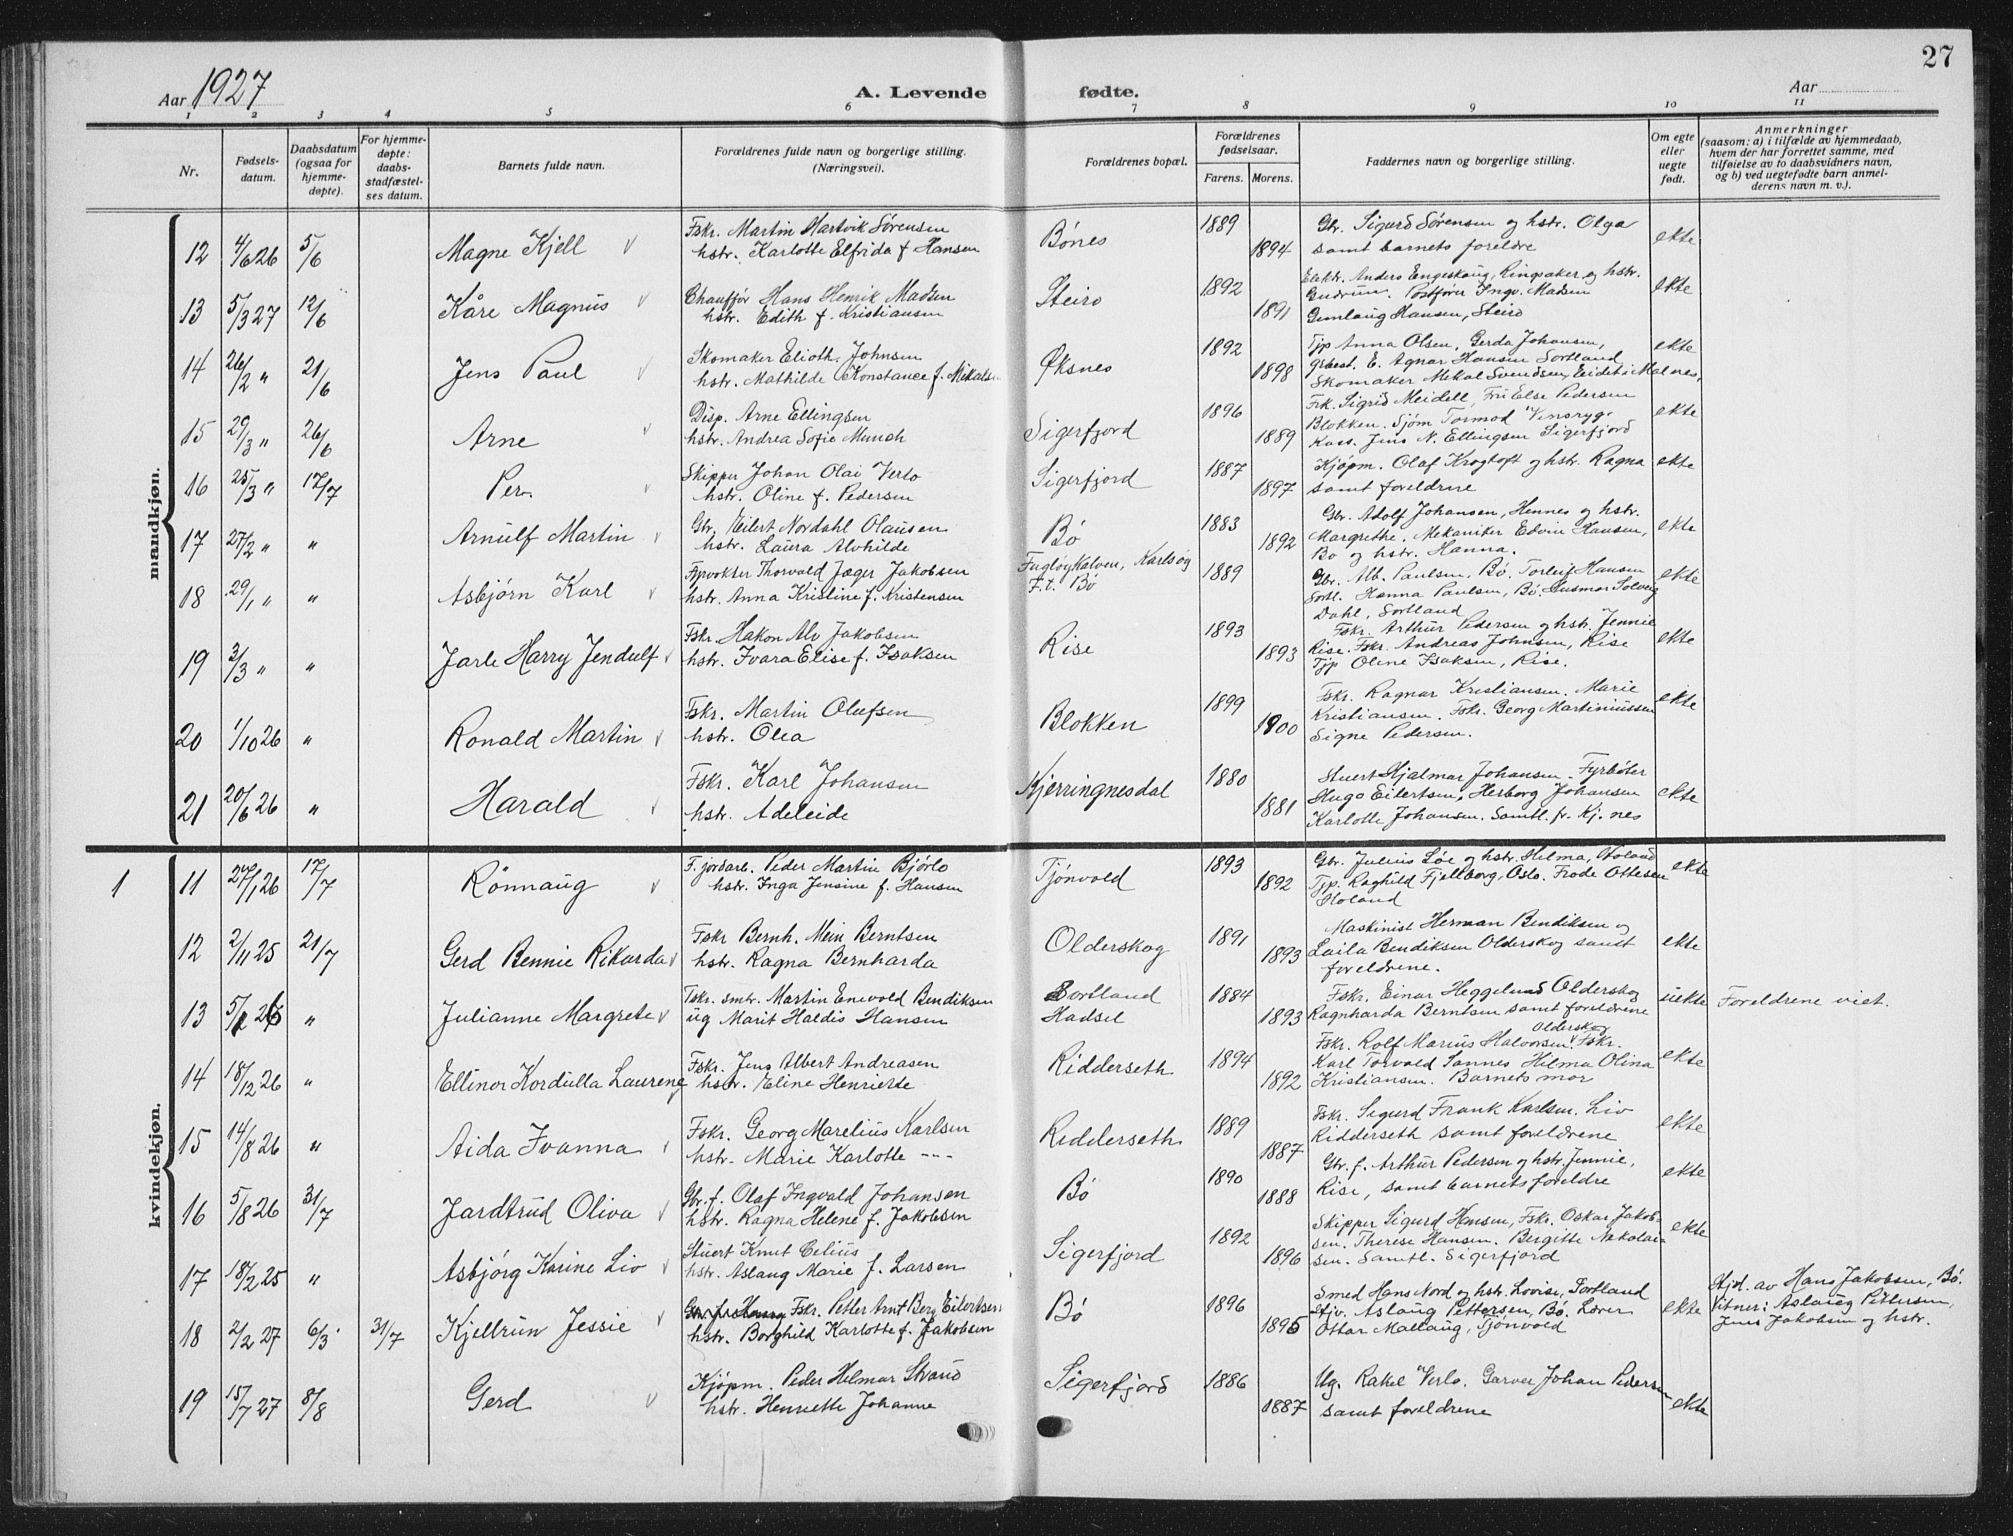 27
Aar 1927
A. Levende fødte.
Aar
1 2 3 4 5 6 7 8 9 10 11
Nr.
Fødsels-
datum.
Daabsdatum
(ogsaa for
hjemme-
døpte).
For hjemme-
døpte:
daabs-
stadfæstel-
ses datum.
Barnets fulde navn.
Forældrenes fulde navn og borgerlige stilling.
(Næringsvei).
Forældrenes bopæl.
Forældrenes
fødselsaar.
Farens. Morens.
Faddernes navn og borgerlige stilling.
Om egte
eller
uegte
født.
Anmerkninger
(saasom: a) i tilfælde av hjemmedaab,
hvem der har forrettet samme, med
tilføielse av to daabsvidners navn,
og b) ved uegtefødte barn anmel-
derens navn m. v.).
mandkjøn.
12 4/6 26 5/6 Magne Kjell
Fskr. Martin Hartvik Sørensen
hstr. Karlotte Elfrida f Hansen
Bønes 1889 1894
Gbr. Sigurd Sørensen og hstr. Olga
samt barnets foreldre
ekte
13 5/3 27 12/6 Kåre Magnus
Chauffør Hans Henrik Madsen
hstr. Edith f. Kristiansen
Steiro 1892 1891
Elektr. Anders Engeskaug, Ringsaker og hstr.
Gudrun. Postfører Ingv. Madsen
Gunlaug Hansen, Steiro
ekte
14 26/2 " 21/6 Jens Paul
Skomaker Elioth Johnsen
hstr. Mathilde Konstance f. Mikals
Øksnes 1892 1898
Tjp Anna Olsen, Gerda Johansen,
E. Agnar Hansen Sortland
Skomaker Mekal Svendsen, Eidet i Malnes,
ekte
15 29/3 " 26/6 Arne
Disp. Arne Ellingsen
hstr. Andrea Sofie Munch
Sigerfjord 1896 1889
Frk. Sigrid Meidell, Fru Else Pedersen
Blokken. Sjøm Tormod
Kass. Jens N. Ellingsen Sigerfjord
ekte
16 25/3 " 17/7 Per.
Skipper Johan Olai Verlo
hstr. Oline f. Pedersen
Sigerfjord 1887 1897
Kjøpm. Olaf Krogtoft og hstr. Ragna
samt foreldrene
ekte
17 27/2 " " Arnulf Martin
Gbr. Eilert Nordahl Olausen
hstr. Laura Alvhilde
Bø 1883 1892
Gbr. Adolf Johansen, Hennes og hstr.
Margrethe. Mekaniker Edvin Hansen,
Bø og hstr. Hanna.
ekte
18 29/1 " " Asbjørn Karl
Fyrvokter Thorvald Jæger Jakobsen
hstr. Anna Kristine f. Kristensen
Fugløykalven, Karlsøy
F.t. Bø 1889
Gbr. Alb. Paulsen, Bø. Torleif Hansen
Sortl. Hanna Paulsen, Bø. Husmor Solveig
Dahl, Sortland
ekte
19 3/3 " " Jarle Harry Jendulf
Fskr. Hakon Alv Jakobsen
hstr. Ivara Elise f. Isaksen
Rise 1893 1893
Fskr. Arthur Pedersen og hstr. Jennie
Rise. Fskr. Andreas Johnsen, Rise
Tjp Oline Isaksen, Rise.
ekte
20 1/10 26 " Ronald Martin
Fskr. Martin Olufsen
hstr. Olea
Blokken 1899 1900
Fskr. Ragnar Kristiansen. Marie
Kristiansen. Fskr. Georg Martiniussen
Signe Pedersen.
ekte
21 20/6 26 " Harald
Fskr. Karl Johansen
hstr. Adeleide
Kjerringnesdal 1880 1881
Stuert Hjalmar Johansen. Fyrbøter
Hugo Eilertsen, Herborg Johansen
Karlotte Johansen. Samtl. fr. Kj. nes
ekte
kvindekjøn.
1 11 24/1 26 17/7 Rönnaug
F. jordarb. Peder Martin Bjørlo
hstr. Inga Jensine f. Hansen
Tjönvold 1893 1892
Gbr. Julius Löe og hstr. Hilma, Holand
Tjp. Raghild Fjellborg, Oslo. Frode Ottesen
Holand
ekte
12 2/11 25 21/7 Gerd Bennie Rikarda
Fskr Bernh. Mein Berntsen
hstr. Ragna Bernharda
Olderskog 1891 1893
Maskinist Herman Bendiksen og
Laila Bendiksen Olderskog samt
foreldrene.
ekte
13 " Julianne Margrete
Fskr. smbr. Martin Enevold Bendiksen
ug Marit Haldis Hansen
Sortland
Hadsel 1884 1893
Fskr. Einar Heggelund Olderskog
Ragnharda Berntsen samt foreldrene
Olderskog
uekte Foreldrene viet.
14 18/12 26 " Ellinor Kordulla Laureng
Fskr. Jens Albert Andreasen
hstr. Eline Henriette
Ridderseth 1894 1892
Fskr. Rolf Marius Halvorsen Fskr.
Karl Torvald Sannes Hilma Olina
Kristiansen. Barnets mor
ekte
15 14/8 26 " Aida Ivanna
Fskr. Georg Marelius Karlsen
hstr. Marie Karlotte ---
Ridderseth 1889 1887
Fskr. Sigurd Frank Karlsen. Liv
Ridderseth samt foreldrene
ekte
16 5/8 26 31/7 Jardtrud Oliva
Gbr. f. Olaf Ingvald Johansen
hstr. Ragna Helene f. Jakobsen
Bø 1890 1888
Gbr. f. Arthur Pedersen og hstr. Jennie,
Rise, samt barnets foreldre
ekte
17 18/2 25 " Asbjörg Karine Liv
Stuert Knut Celius
hstr. Aslaug Marie f. Larsen
Sigerfjord 1892 1896
Skipper Sigurd Hansen, Fskr. Oskar Jakob-
sen. Therese Hansen. Bergitte Nikolai-
sen. Samtl. Sigerfjord
ekte
18 2/2 27 6/3 31/7 Kjellrun Jessie
Fskr. Petter Arnt Berg Eilertsen
hstr. Borghild Karlotte f. Jakobsen
Bø 1896 1895
Smed Hans Nord og hstr. Lovise, Sortland
Aslaug Pettersen, Bø. Lærer
Ottar Mallaug, Tjønvold
ekte
Hjd. av Hans Jakobsen, Bø.
Vitner: Aslaug Pettersen,
Jens Jakobsen og hstr.
19 15/7 27 8/8 Gerd
Kjøpm. Peder Hilmar Strand
hstr. Henriette Johanne
Sigerfjord 1886 1887
Ug. Rakel Verlo. Garver Johan Pedersen
samt foreldrene
ekte